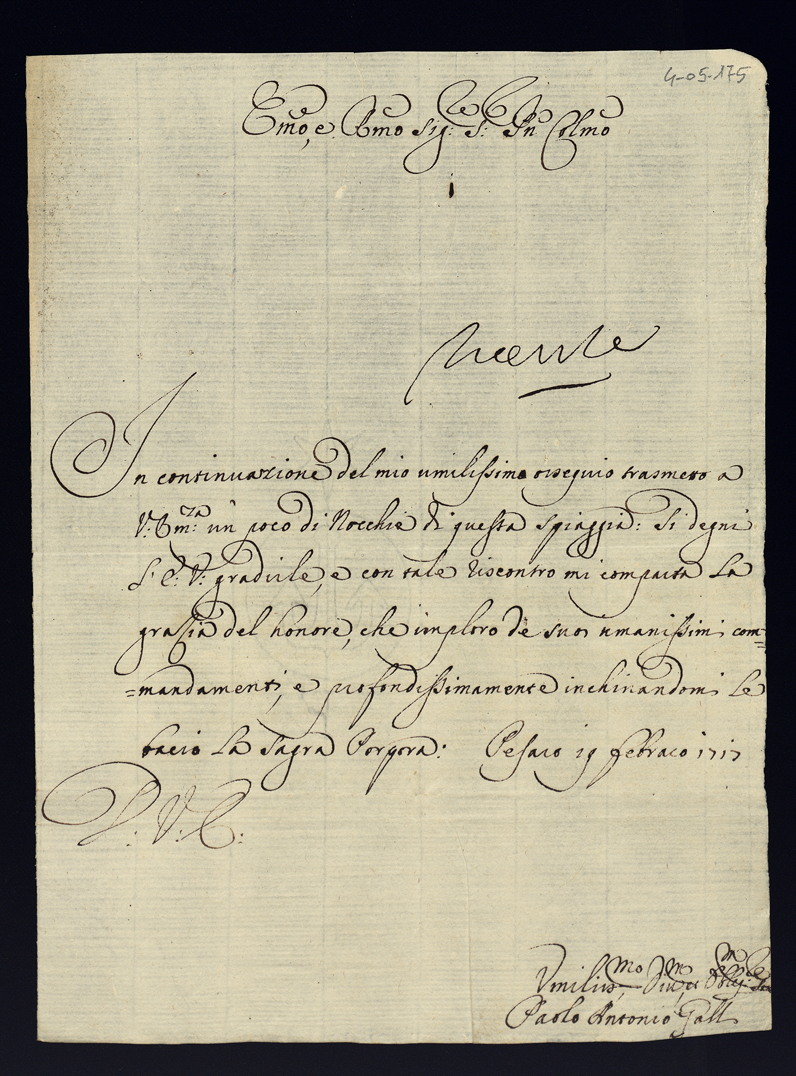 4-05-175
Emo, e Rmo Sig:re S: Pn Colmo
In continuazione del mio umilissimo osseguio trasmetto a
V: Em:za un poco di Nocchie di questa spiaggia: Si degni
L' E: V: gradirle, e con tale riscontro mi comparta la
grazia del honore, che imploro de suoi umanissimi com=
=mandamenti, e profondissimamente inchinandomi le
bacio la Sagra Porpora: Pesaro 19 febraro 1717
D: V: E:
Umiliss:mo Div:
Paolo Antonio Galli